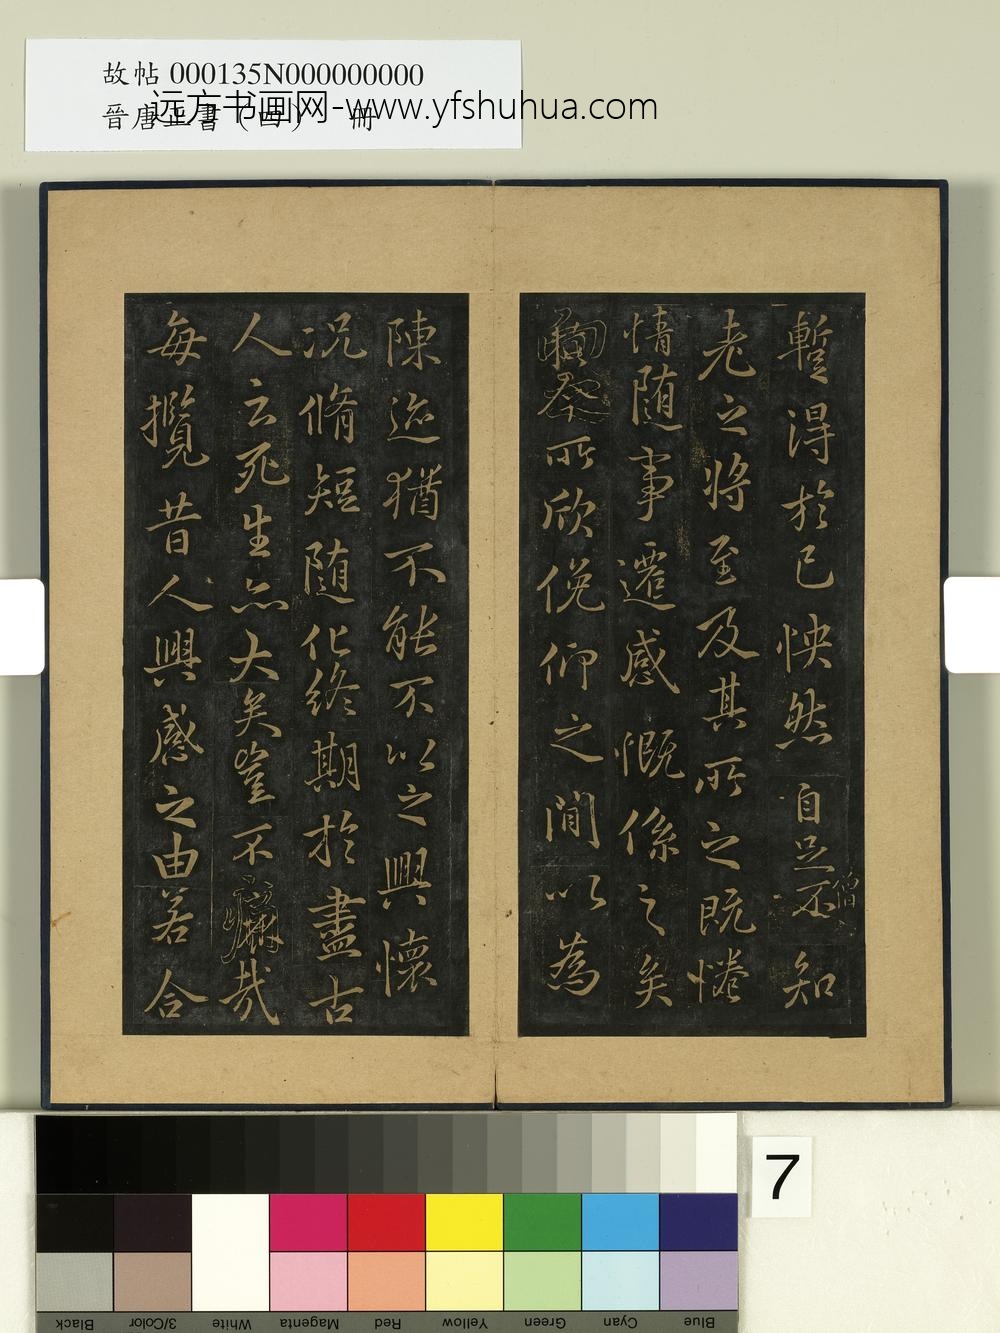 故帖 000135N000000000
晉唐正書(四) 冊
远方书画网-www.yfshuhua.com
暫得於己怏然自足不知
僧
老之將至及其所之既惓
情隨事遷感慨係之矣
向之所欣俛仰之閒以為
陳迹猶不能不以之興懷
況脩短隨化終期於盡古
人云死生亦大矣豈不痛哉
每攬昔人興感之由若合
7
Blue Cyan Green Yellow Red Magenta White 3/Color Black